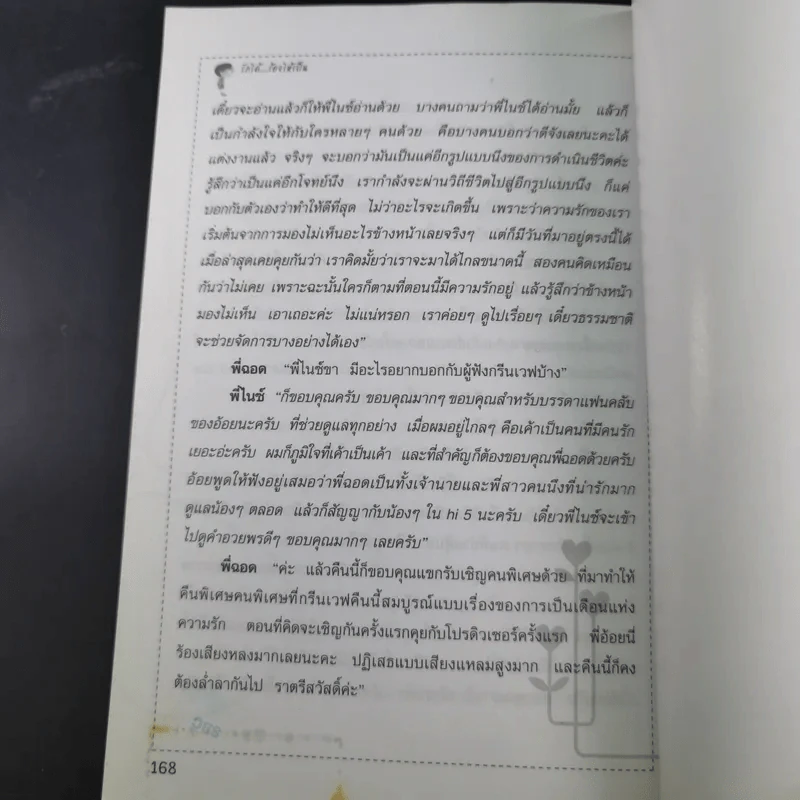 เดี๋ยวจะอ่านแล้วก็ให้พี่ไนซ์อ่านด้วย บางคนถามว่าพี่ไนซ์ได้อ่านมั้ย แล้วก็
เป็นกำลังใจให้กับใครหลายๆ คนด้วย คือบางคนบอกว่าดีจังเลยนะคะได้
แต่งงานแล้ว จริงๆ จะบอกว่ามันเป็นแค่อีกรูปแบบนึงของการดำเนินชีวิตค่ะ
รู้สึกว่าเป็นแค่อีกโจทย์นึง เรากำลังจะผ่านวิถีชีวิตไปสู่อีกรูปแบบนึง ก็แค่
บอกกับตัวเองว่าทำให้ดีที่สุด ไม่ว่าอะไรจะเกิดขึ้น เพราะว่าความรักของเรา
เริ่มต้นจากการมองไม่เห็นอะไรข้างหน้าเลยจริงๆ แต่ก็มีวันที่มาอยู่ตรงนี้ได้
เมื่อล่าสุดเคยคุยกันว่า เราคิดมั้ยว่าเราจะมาได้ไกลขนาดนี้ สองคนคิดเหมือน
กันว่าไม่เคย เพราะฉะนั้นใครก็ตามที่ตอนนี้มีความรักอยู่ แล้วรู้สึกว่าข้างหน้า
มองไม่เห็น เอาเถอะค่ะ ไม่แน่หรอก เราค่อยๆ ดูไปเรื่อยๆ เดี๋ยวธรรมชาติ
จะช่วยจัดการบางอย่างได้เอง”
พี่ฉอด “พี่ไนซ์ขา มีอะไรอยากบอกกับผู้ฟังกรีนเวฟบ้าง”
พี่ไนซ์ “ก็ขอบคุณครับ ขอบคุณมากๆ ขอบคุณสำหรับบรรดาแฟนคลับ
ของอ้อยนะครับ ที่ช่วยดูแลทุกอย่าง เมื่อผมอยู่ไกลๆ คือเค้าเป็นคนที่มีคนรัก
เยอะอ่ะครับ ผมก็ภูมิใจที่เค้าเป็นเค้า และที่สำคัญก็ต้องขอบคุณพี่ฉอดด้วยครับ
อ้อยพูดให้ฟังอยู่เสมอว่าพี่ฉอดเป็นทั้งเจ้านายและพี่สาวคนนึงที่น่ารักมาก
ดูแลน้องๆ ตลอด แล้วก็สัญญากับน้องๆ ใน hi 5 นะครับ เดี๋ยวพี่ไนซ์จะเข้า
ไปดูคำอวยพรดีๆ ขอบคุณมากๆ เลยครับ”
พี่ฉอด “ค่ะ แล้วคืนนี้ก็ขอบคุณแขกรับเชิญคนพิเศษด้วย ที่มาทำให้
คืนพิเศษคนพิเศษที่กรีนเวฟคืนนี้สมบูรณ์แบบเรื่องของการเป็นเดือนแห่ง
ความรัก ตอนที่คิดจะเชิญกันครั้งแรกคุยกับโปรดิวเซอร์ครั้งแรก พี่อ้อยนี่
ร้องเสียงหลงมากเลยนะคะ ปฏิเสธแบบเสียงแหลมสูงมาก และคืนนี้ก็คง
ต้องล่ำลากันไป ราตรีสวัสดิ์ค่ะ”
168